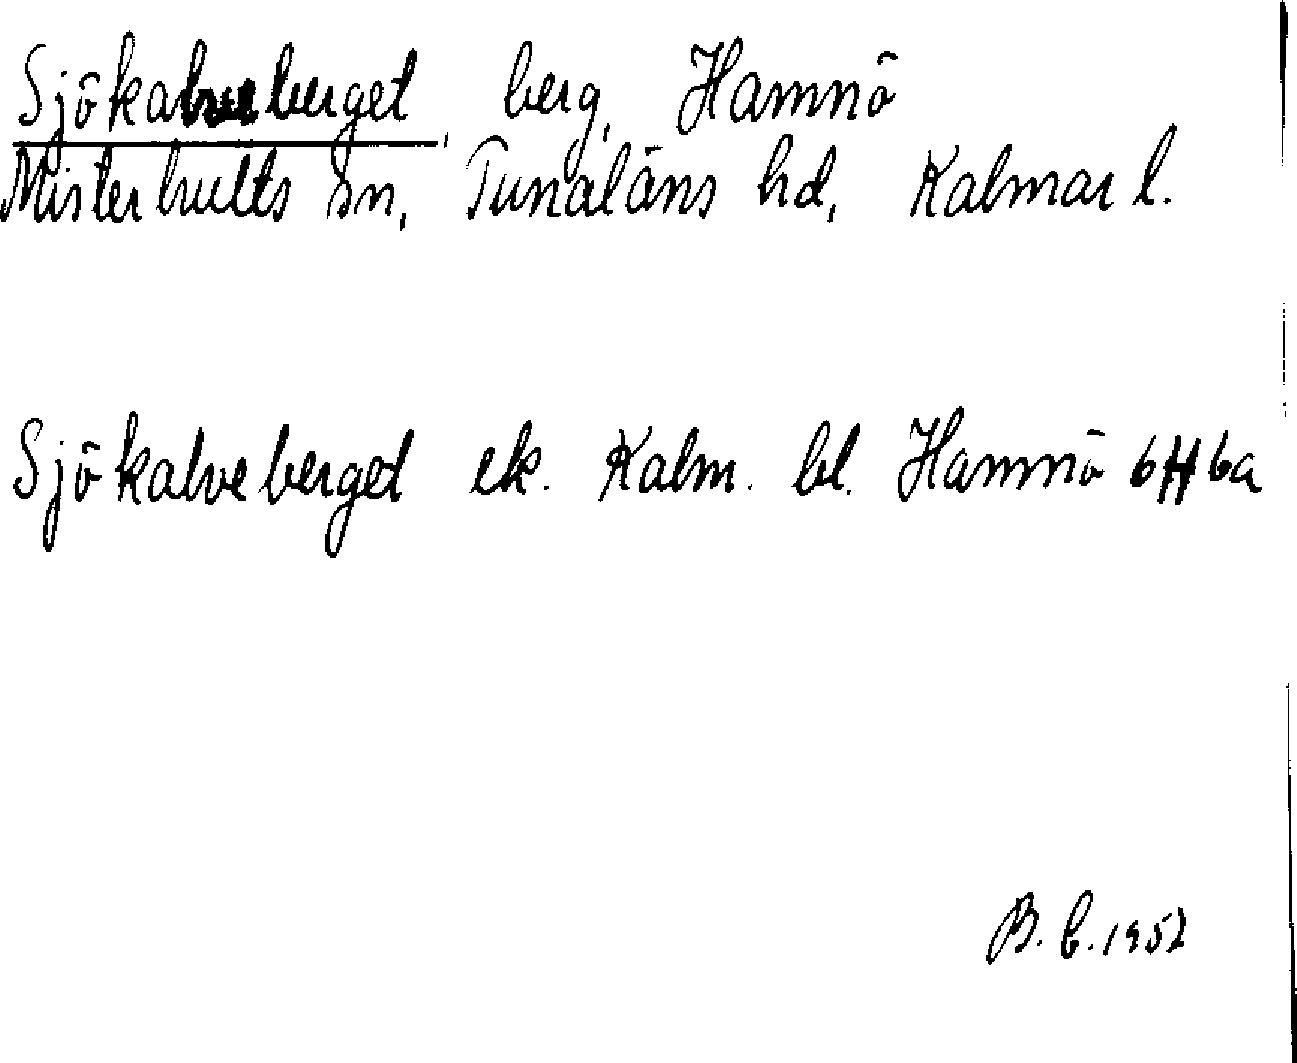 Sjökalveberget, berg, Hamnö
Misterhults sn, Tunaläns hd, Kalmar l.
Sjökalveberget ek. Kalm. bl. Hamnö 6H6a
B. C. 1952